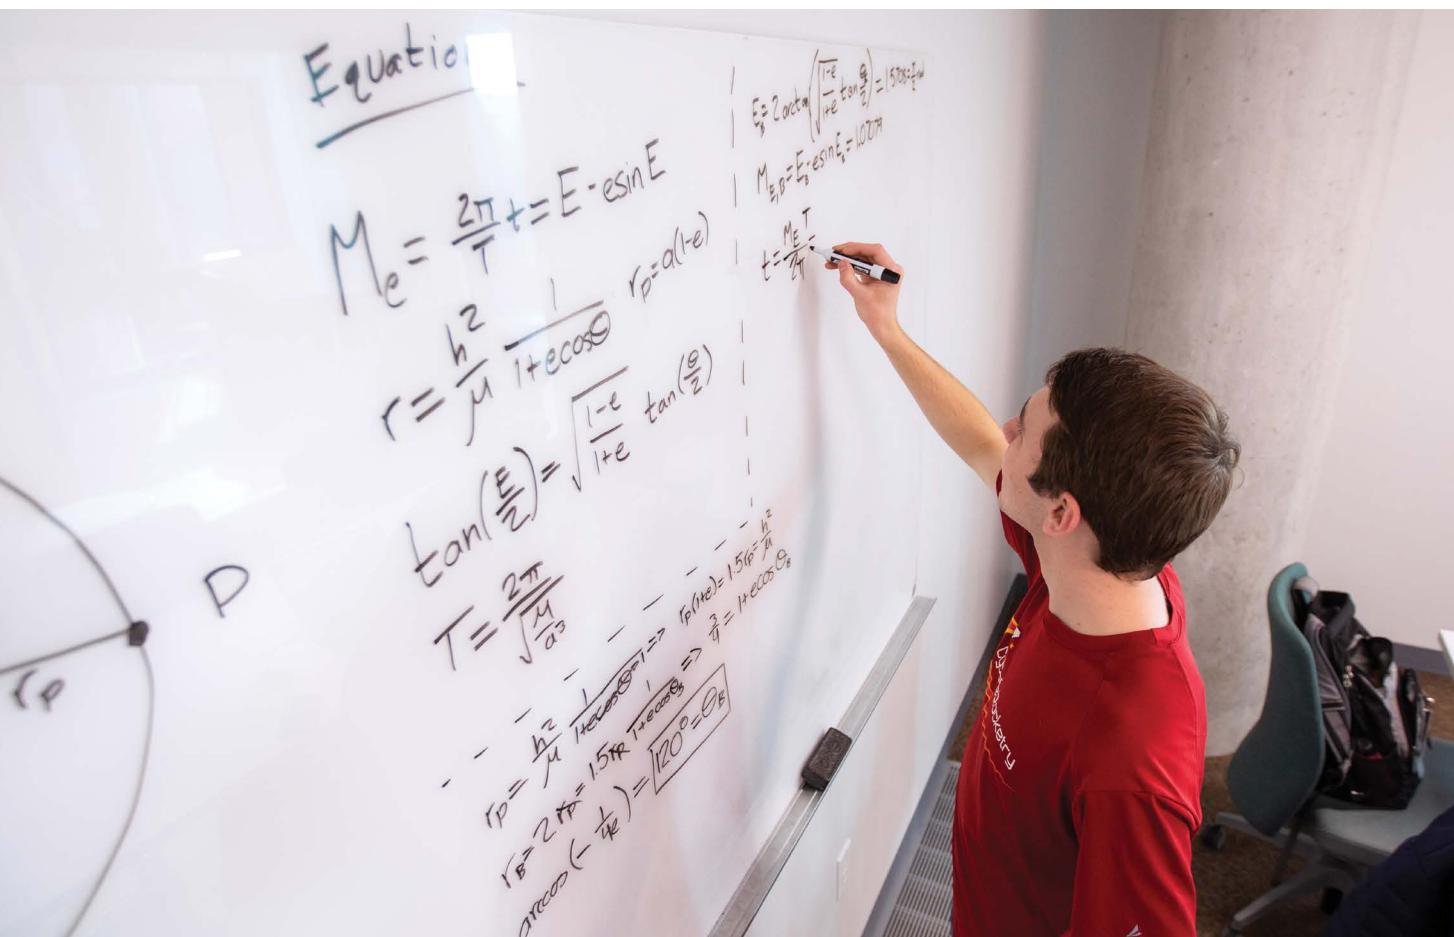 Equation
Mₑ = 2π/T t = E - esinE
r = h²/μ 1/(1+ecosθ) rₚ = a(1-e)
tan(E/2) = √((1-e)/(1+e)) tan(θ/2)
T = 2π/√(μ/a³)
rₚ = h²/μ 1/(1+ecosθ) => rₚ(1+e) = 1.5rₚ = h²/μ
r_B = 2rₚ = 1.5rₚ 1/(1+ecosθ_B) => 3/4 = 1+ecosθ_B
arccos(-1/4e) = 120° = θ_B
E_B = 2 arctan(√((1-e)/(1+e)) tan θ/2) = 1.5708 = π/2 rad
M_E,B = E_B - esinE_B =
t = M_E T/2π =
P
rₚ